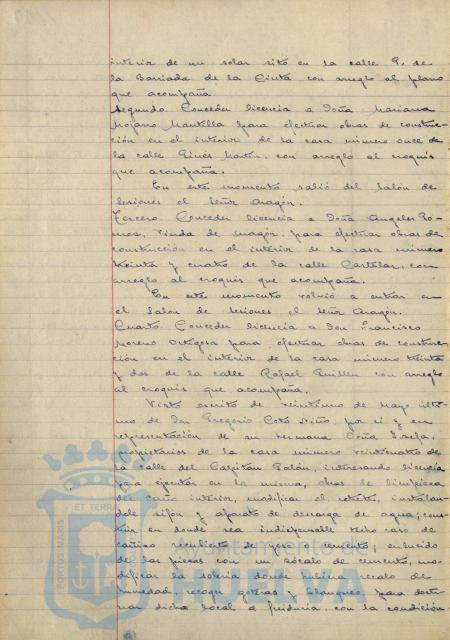 interior de un solar sito en la calle P. de
la Barriada de la Cinta con arreglo al plano
que acompaña
Segundo. Conceder licencia a Doña Mariana
Mojano Mantilla para efectuar obras de construc-
ción en el interior de la casa número once de
la calle Ginés Martín, con arreglo al croquis
que acompaña.
En este momento salió del Salón de
Sesiones el Señor Aragón.
Tercero. Conceder licencia a Doña Angeles Ro-
mea, Viuda de Aragón, para efectuar obras de
construcción en el interior de la casa número
treinta y cuatro de la calle Castelar, con
arreglo al croquis que acompaña.
En este momento volvió a entrar en
el Salón de Sesiones, el Señor Aragón.
Cuarto. Conceder licencia a Don Francisco
Moreno Ortega para efectuar obras de construc-
ción en el interior de la casa número treinta
y dos de la calle Rafael Guillén con arreglo
al croquis que acompaña.
Visto escrito de veintiuno de Mayo últi-
mo de Don Gregorio por sí y en
representación de su hermana Doña Josefa,
propietarios de la casa número veinticuatro de
la calle del Capitán Galán, interesando licencia
para ejecutar en la misma, obras de limpieza
del caño interior, modificar el retrete, instalan-
dole sifón y aparato de descarga de agua; cons-
truir en donde sea indispensable trozo de
cañizo recubierto de yeso y cemento; enlucido
de las piezas con un zócalo de cemento, mo-
dificar la solería donde hubiera recalo de
humedad, recoger goteras y blanqueo, para desti-
nar dicho local a freiduría, con la condición
PORTUS MARIS
ET TERRAE
Ayuntamiento de
HUELVA